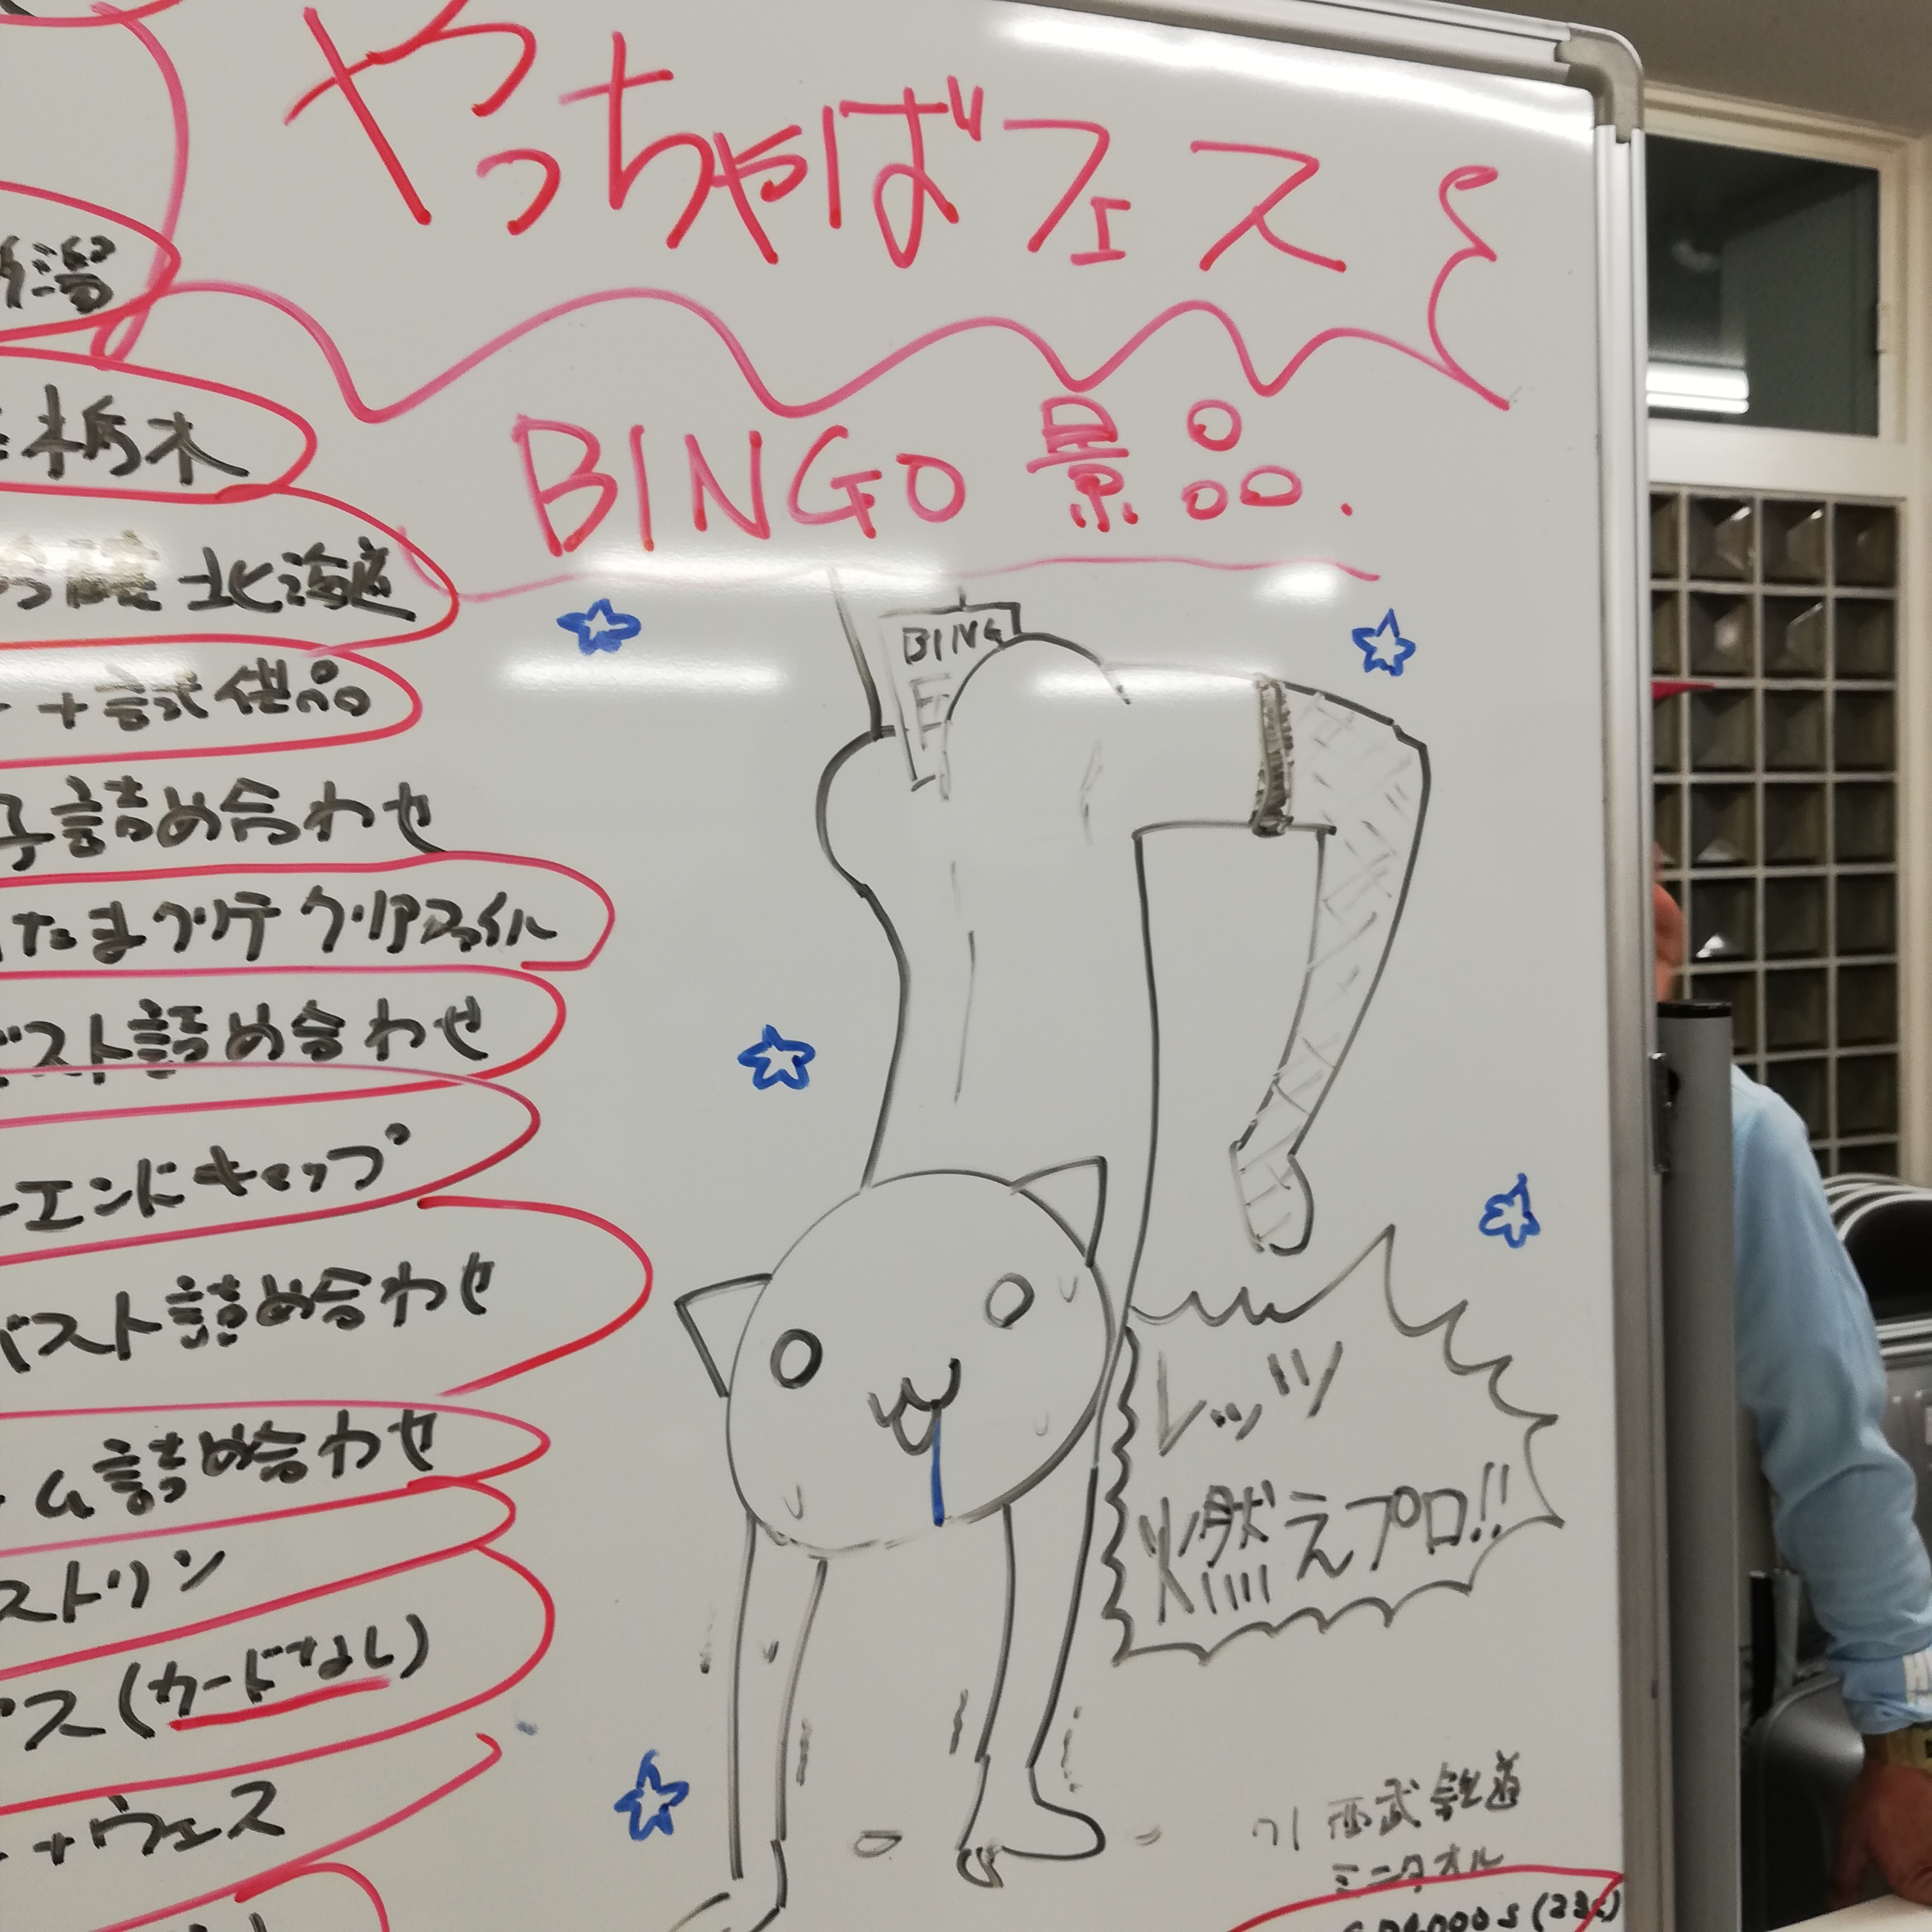 やっちゃばフェス
BINGO 景品.
栃木
北海道
+試供品
子詰め合わせ
たまグリテ クリアファイル
スト詰め合わせ
エンドキャップ
スト詰め合わせ
ム詰め合わせ
ストリン
ス(カードなし)
+ウェス
BING
レッツ
燃えプロ!!
西武鉄道
ミニタオル